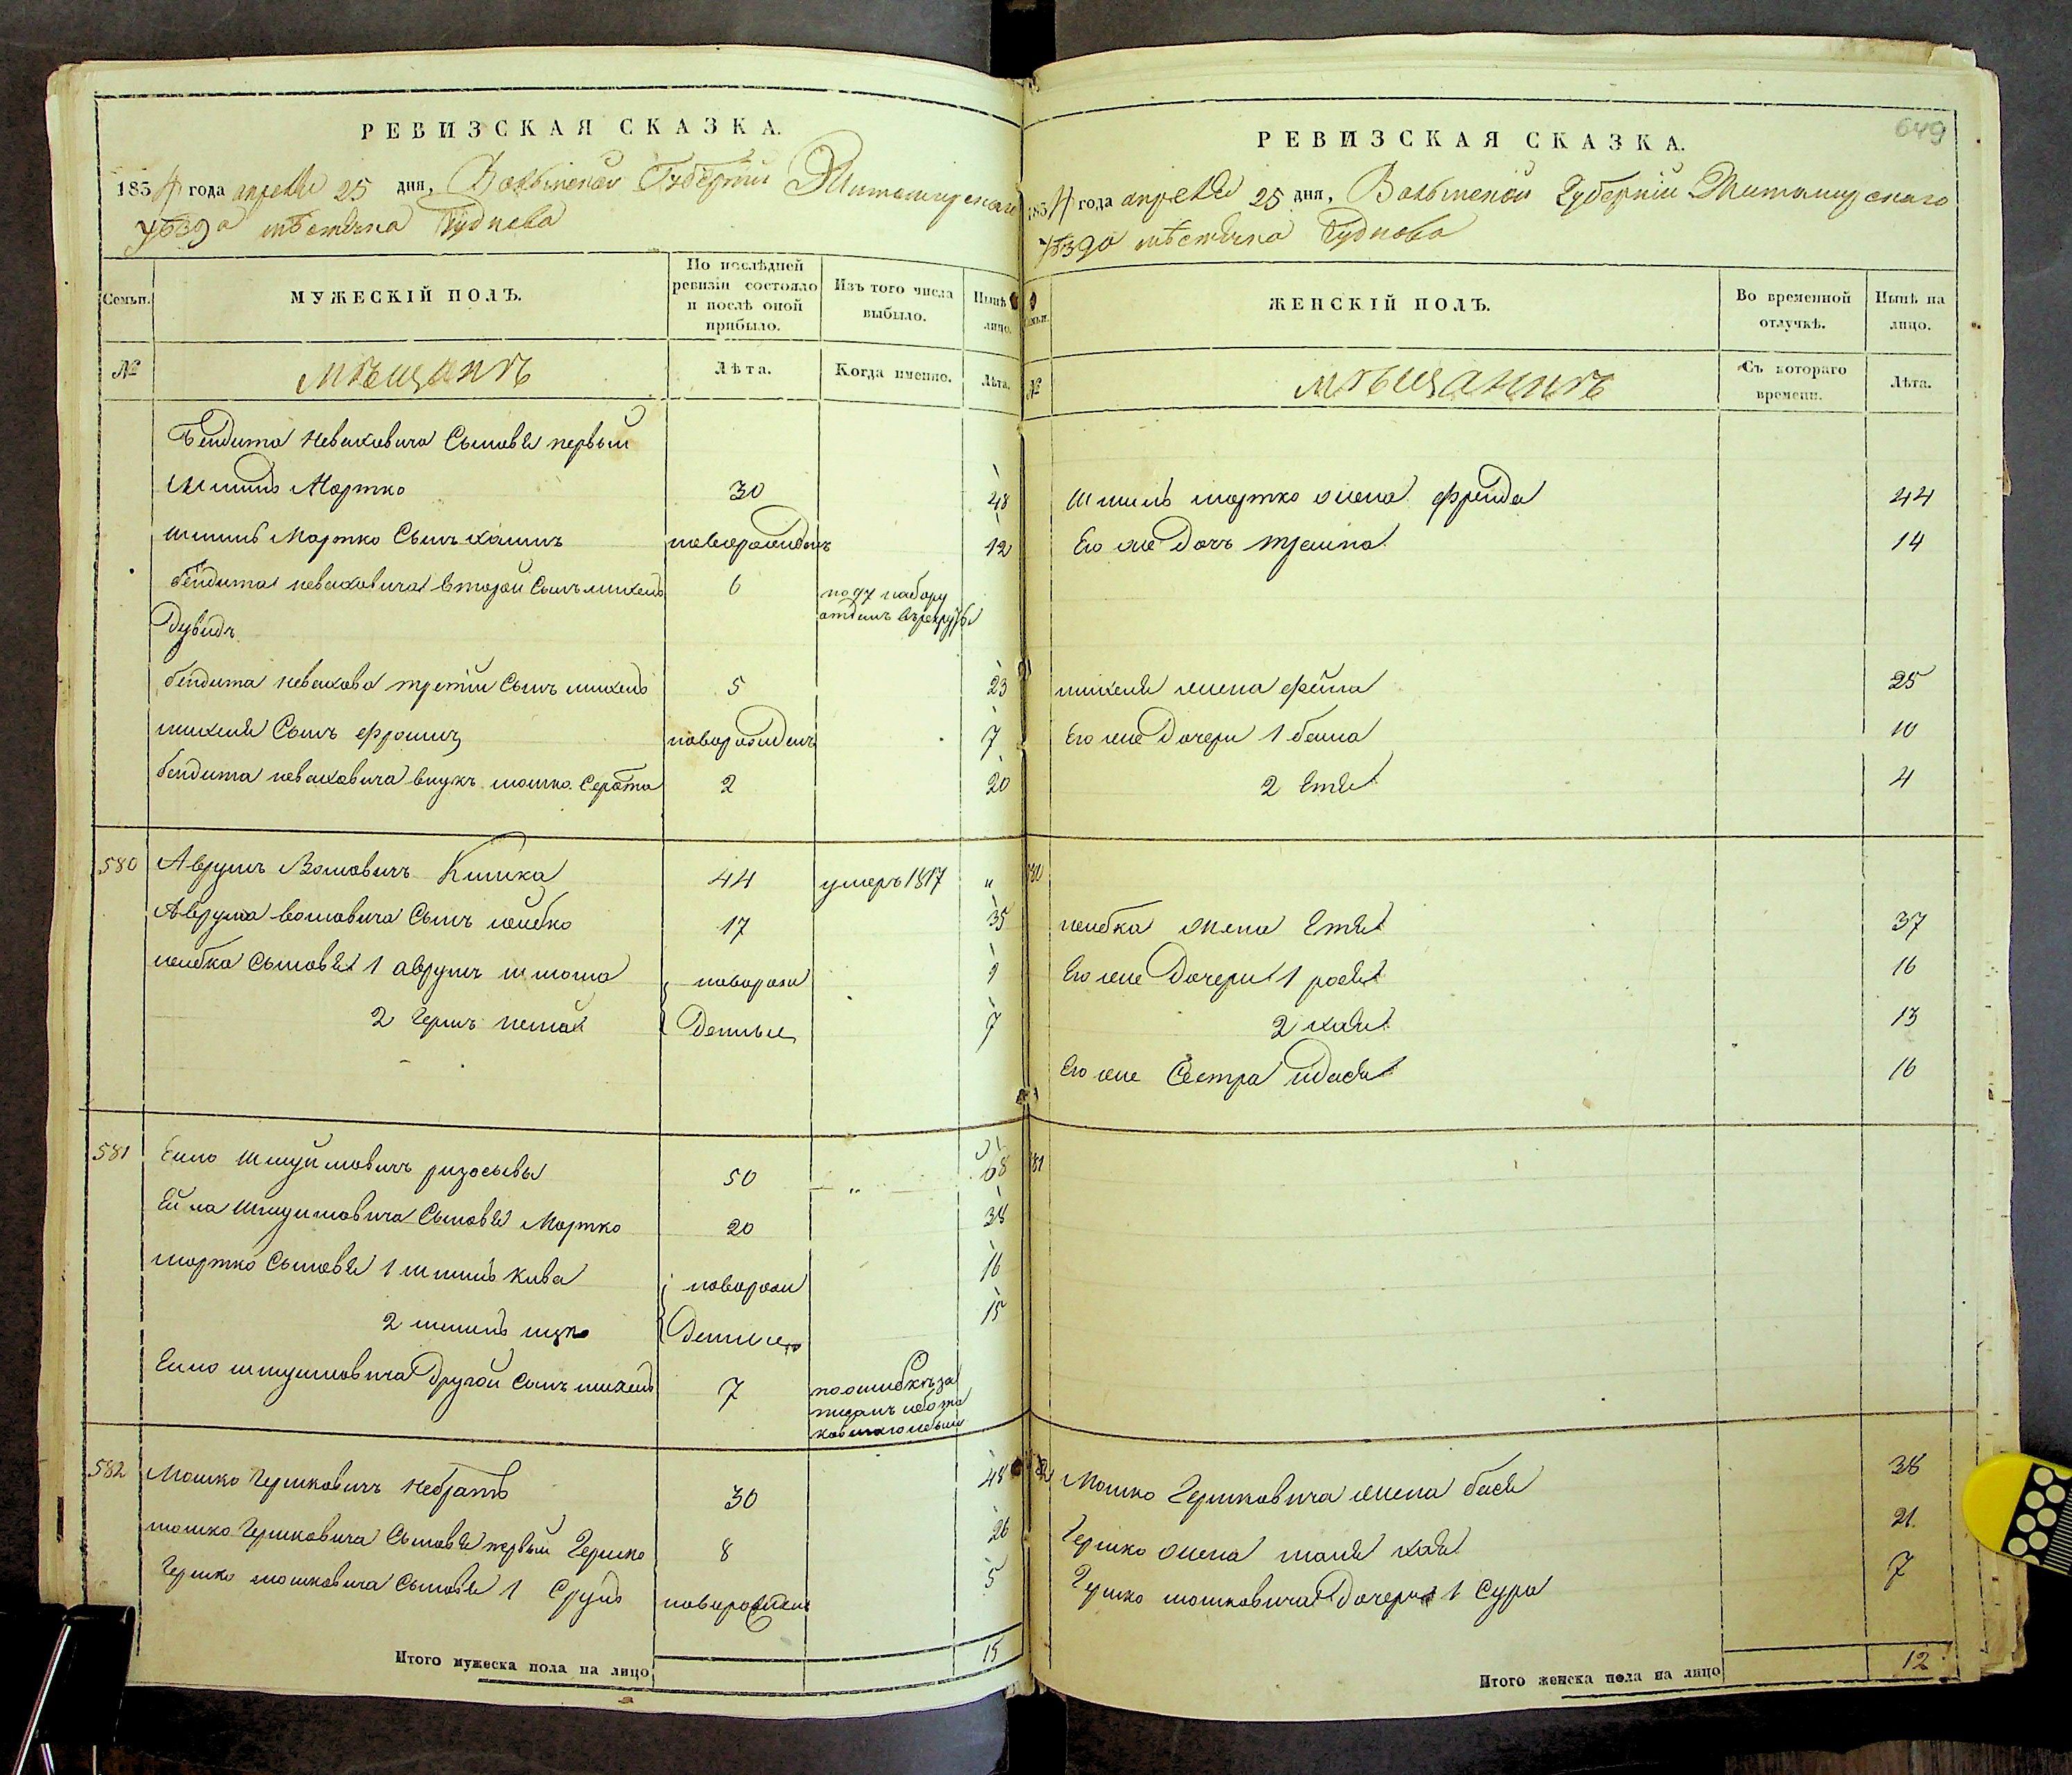 РЕВИЗСКАЯ СКАЗКА.
1834 года апреля 25 дня, Волынской Губерніи Житомирскаго
уѣзда мѣстечка Чуднова
Семьи.
МУЖЕСКІЙ ПОЛЪ.
По послѣдней ревизіи состояло и послѣ оной прибыло.
Изъ того числа выбыло.
Нынѣ лицо.
№
мѣщанъ
Лѣта.
Когда именно.
Лѣта.
Бендита Неваховича Сыновя первый
Шмиль Мортко 30 48
Шмиль Мортко Сынъ хаимъ новорожденъ 12
бендита неваховича второй Сынъ михель 6 по 97 набору
Дувидъ отданъ въ рекруты
бендита невахова третій Сынъ михель 5 23
михеля Сынъ Фроимъ новорожденъ 7
бендита неваховича внукъ мошко Серота 2 20
580 Аврумъ Волковичъ Кишка 44 умеръ 1817 "
Аврума волковича Сынъ лейбко 17 35
лейбка Сыновя 1 аврумъ шлома новорож 9
2 Герш денные 7
581 Ейло Шмуйловичъ 50 " 68
Ейла Шмуйловича Сыновя Мортко 20 38
мортко Сыновя 1 шмиль Кива новорож 16
2 шмиль денные 15
Ейло шмуйловича Другой Сынъ михель 7 по ошибкѣ за
писанъ ибо та
коваго небыло
582 Мошко Гершковичъ Небратъ 30 48
мошко Гершковича Сыновя первый Гершко 8 26
Гершко мошковича Сыновя 1 Сруль новорожден 5
Итого мужеска пола на лицо 15
649
РЕВИЗСКАЯ СКАЗКА.
1834 года апреля 25 дня, Волынской Губерніи Житомирскаго
уѣзда мѣстечка Чуднова
Семьи.
ЖЕНСКІЙ ПОЛЪ.
Во временной отлучкѣ.
Нынѣ на лицо.
№
мѣщанинъ
Съ котораго времени.
Лѣта.
Шмиль мортко жена Фрейда 44
Его же Дочь 14
михеля жена фейга 25
Его же Дочери 1 бейла 10
2 Етя 4
580
лейбка жена Етя 37
Его же Дочери 1 рося 16
2 хая 13
Его же Сестра идася 16
581
582 Мошко Гершковича жена бася 38
Гершко жена маля хая 21
Гершко мошковича Дочери 1 Сура 7
Итого женска пола на лицо 12